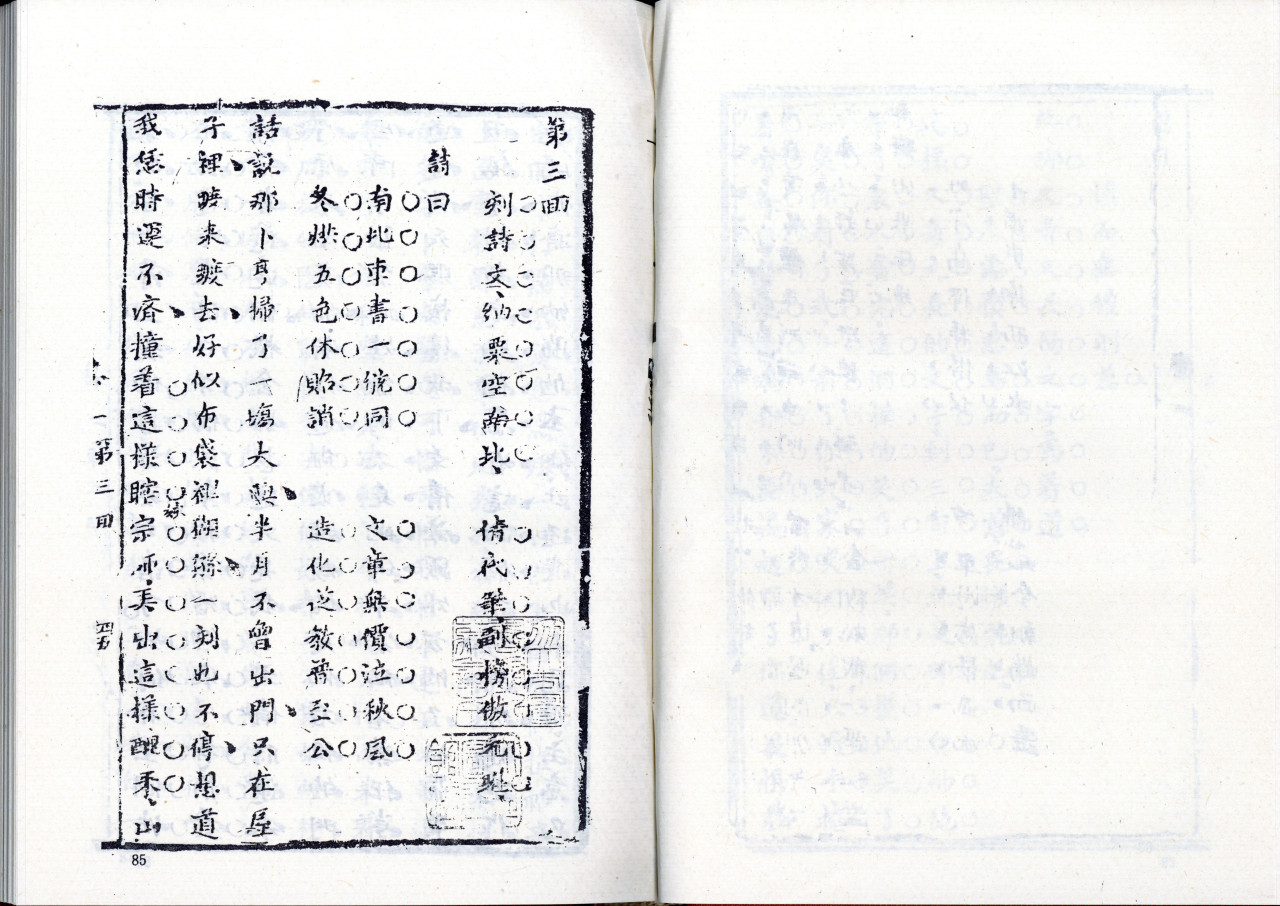 第三回
刻詩文、納粟空冀北、 倩代筆副榜傲元魁
詩曰
南北車書一統同 文章無價泣秋風
冬烘五色休貽誚 造化從教普至公
話說那卜亨掃了一塲大興半月不曾出門只在屋
子裡踱來踱去好似布袋裡猢猻一刻也不停想道
我恁時運不濟撞着這樣瞎宗师弄出這樣醜來山
第三回 四五
85